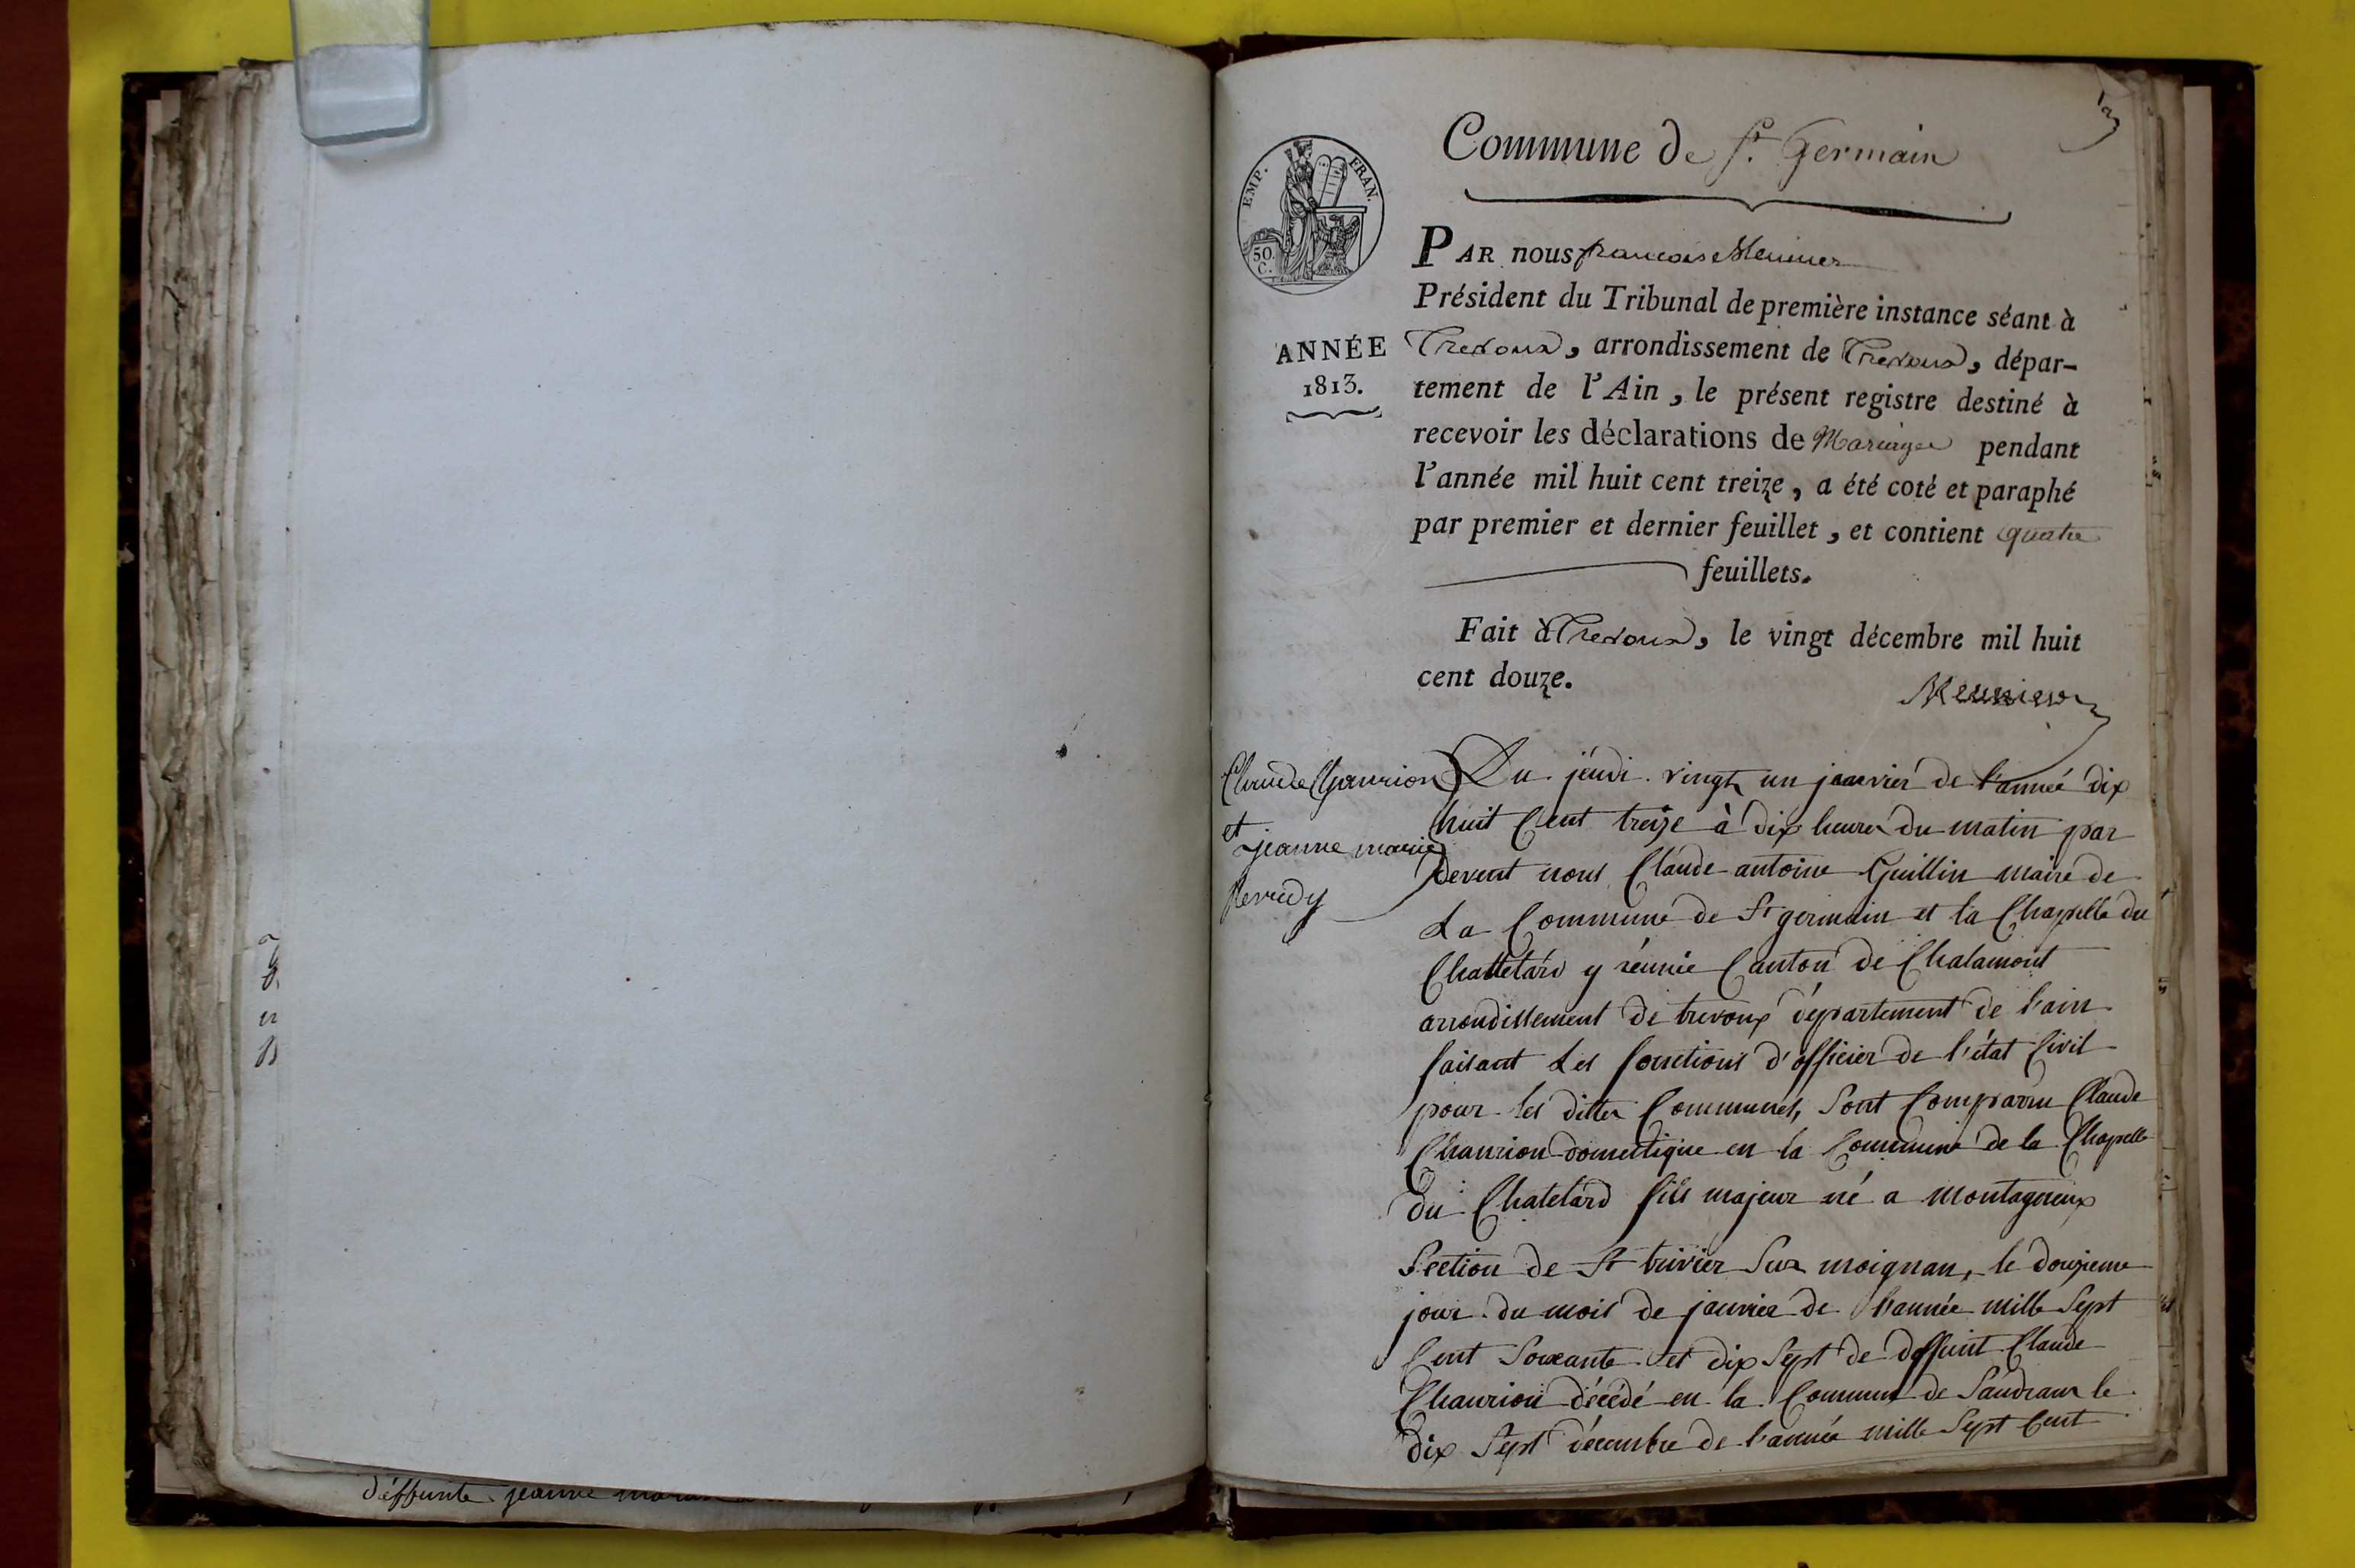 Commune de St. Germain
EMP. FRAN.
50. C.
PAR nous francois Meunier
Président du Tribunal de première instance séant à
Trevoux, arrondissement de Trevoux, dépar-
ANNÉE
1813.
tement de l'Ain, le présent registre destiné à
recevoir les déclarations de Mariages pendant
l'année mil huit cent treize, a été coté et paraphé
par premier et dernier feuillet, et contient quatre
feuillets.
Fait à Trevoux, le vingt décembre mil huit
cent douze.
Meunier
Claude Chaurion
et
jeanne marie
Du jeudi vingt un janvier de l'année dix
huit Cent treize à dix heures du matin par
devent nous Claude antoine Guillin maire de
La Commune de St germain et la Chapelle du
Chattelard y réunie Canton de Chalamont
arrondissement de trevoux département de l'ain
faisant Les fonctions d'officier de l'état Civil
pour les dittes Communes, Sont Comparru Claude
Chaurion domestique en la Commune de la Chapelle
du Chatelard fils majeur né a montagneux
Section de St trivier Sur moignan, le douzieme
jour du mois de janvier de l'année mille Sept
Cent Soixante et dix Sept de deffunt Claude
Chaurion décédé en la Commune de Sandrans le
dix Sept décembre de l'année mille Sept Cent
déffunte jeanne